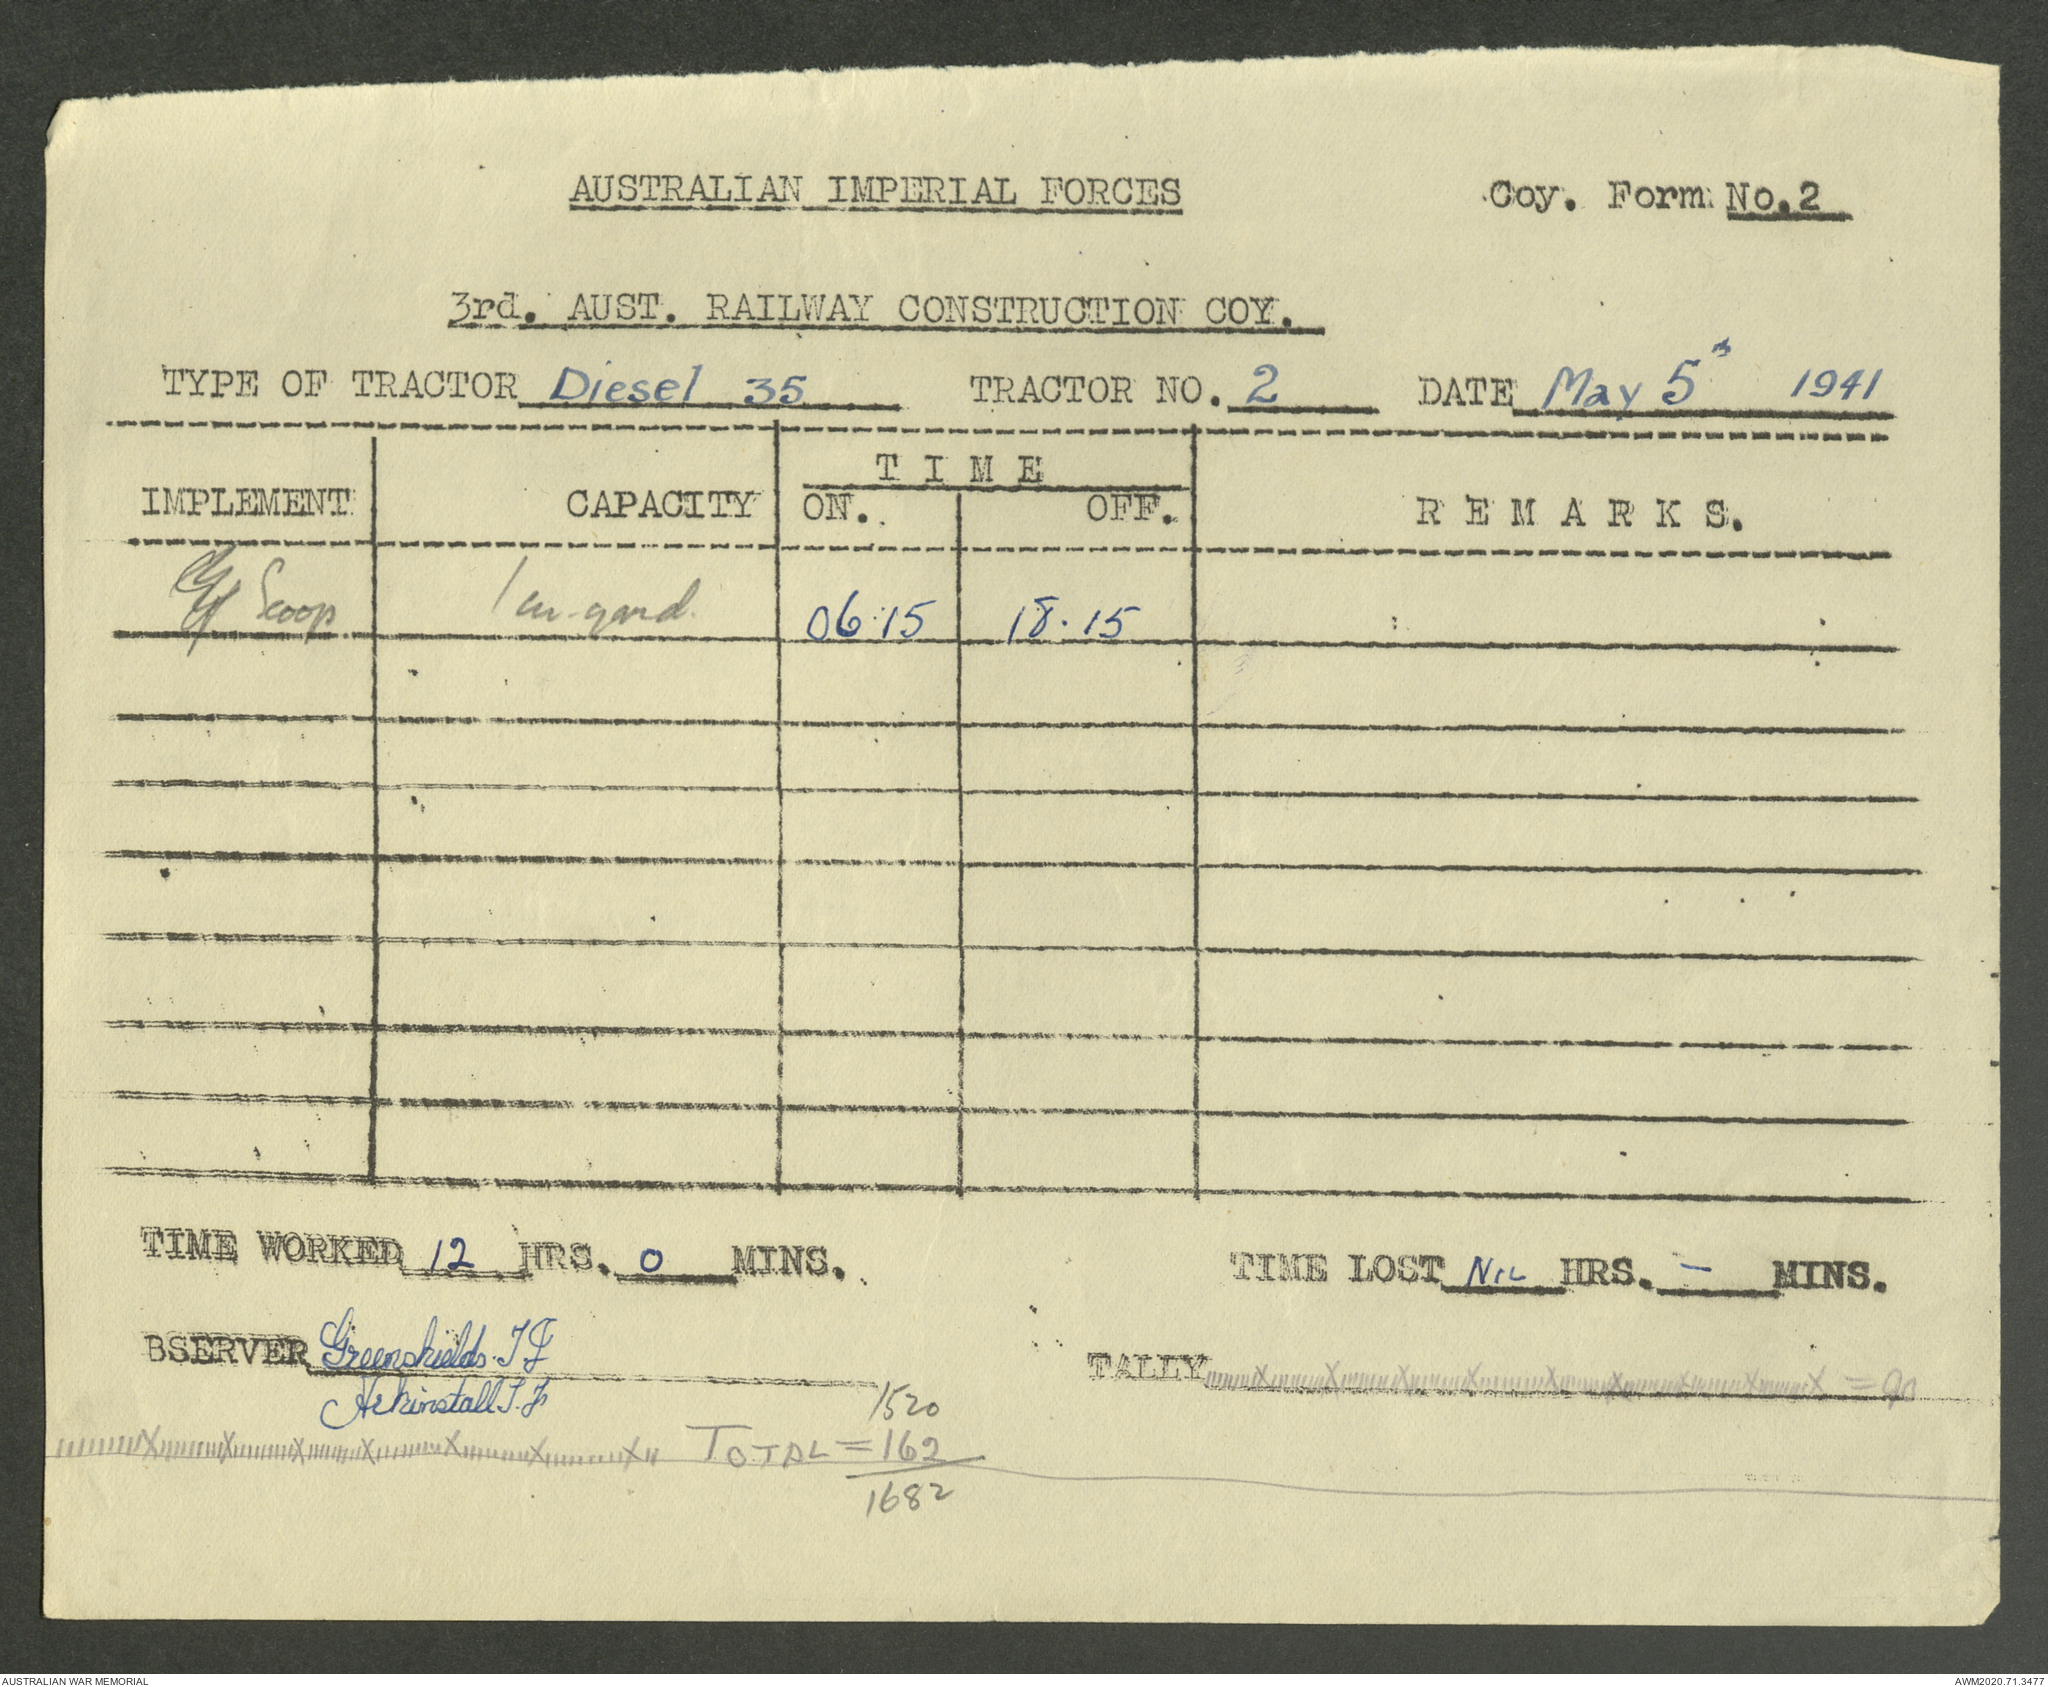 AUSTRALIAN IMPERIAL FORCES
Coy. Form No.2
3rd. AUST. RAILWAY CONSTRUCTION COY.
TYPE OF TRACTOR Diesel 35 TRACTOR NO. 2 DATE May 5 1941
TIME
IMPLEMENT CAPACITY ON. OFF. REMARKS.
Scoop 1 cu-yard. 06.15 18.15
TIME WORKED 12 HRS. 0 MINS. TIME LOST NIL HRS. — MINS.
BSERVER Greenshields. T J TALLY = 90
Arkinstall T. J.
1520
TOTAL = 162
1682
AUSTRALIAN WAR MEMORIAL
AWM2020.71.3477